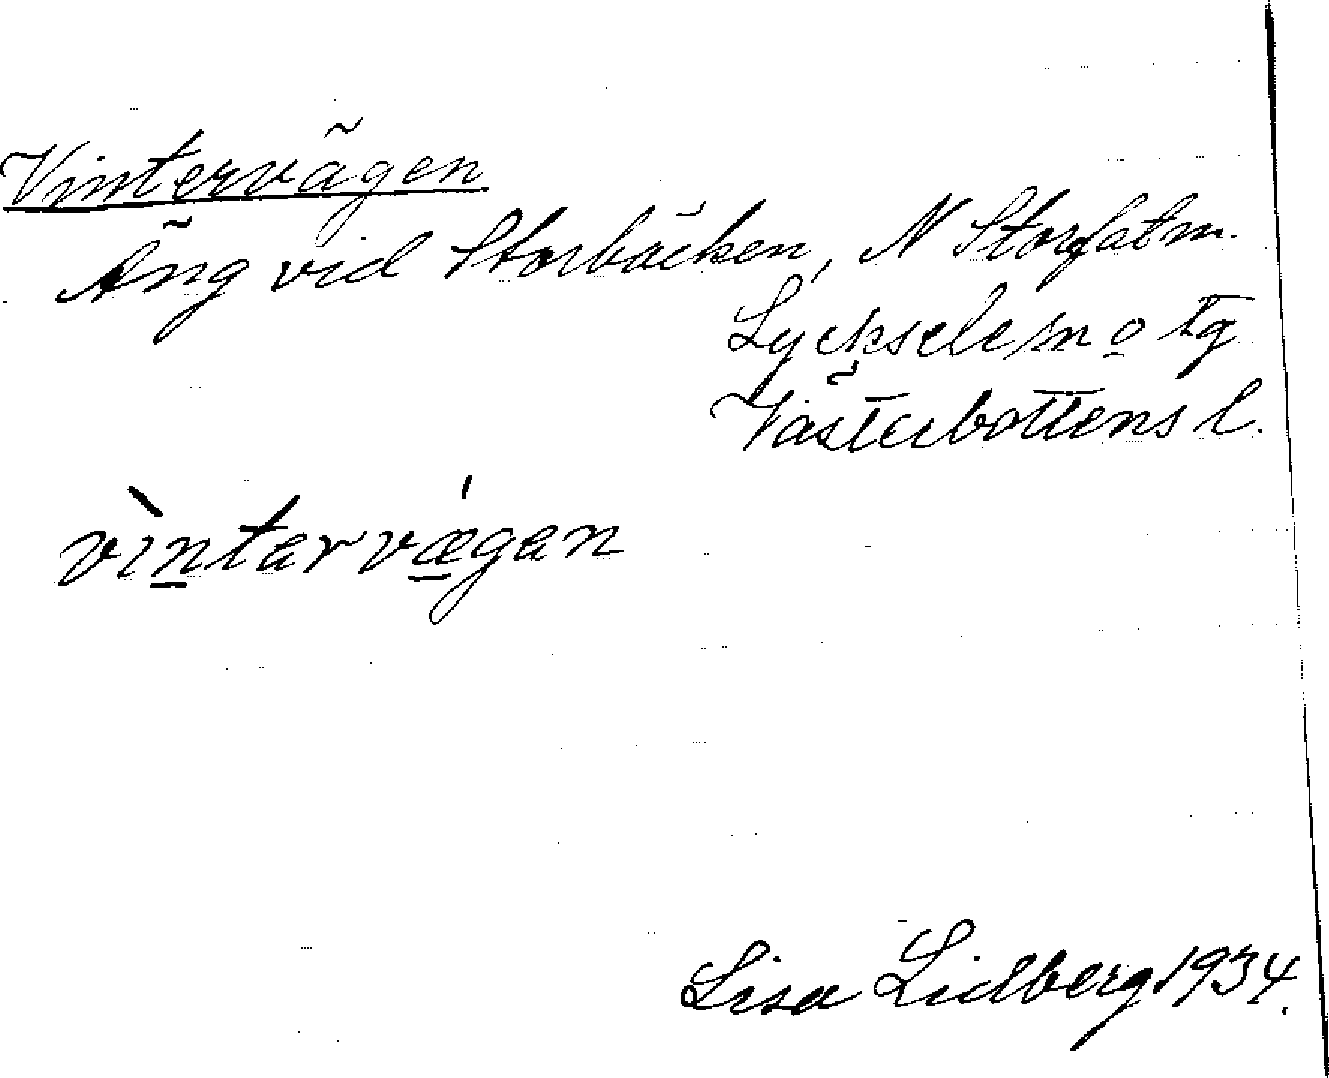 Vintervägen
Äng vid Storbäcken, N Storsatm.
Lycksele sn o tg
Västerbottens l.
vìntarvǽgan
Lisa Lidberg 1934.